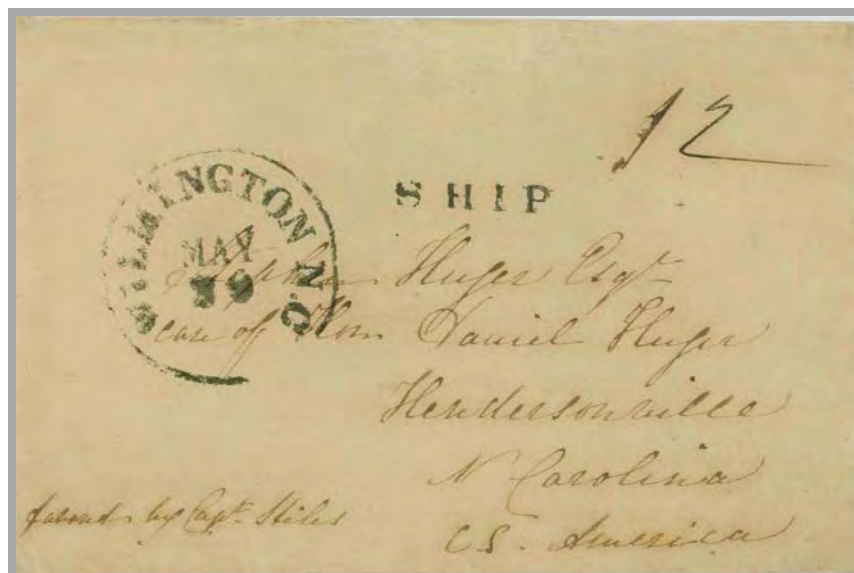 12
SHIP
WILMINGTON N.C.
MAY
Stephen Huger Esqr
care of Hon Daniel Huger
Hendersonville
N Carolina
C.S. America
by Capt. Stiles